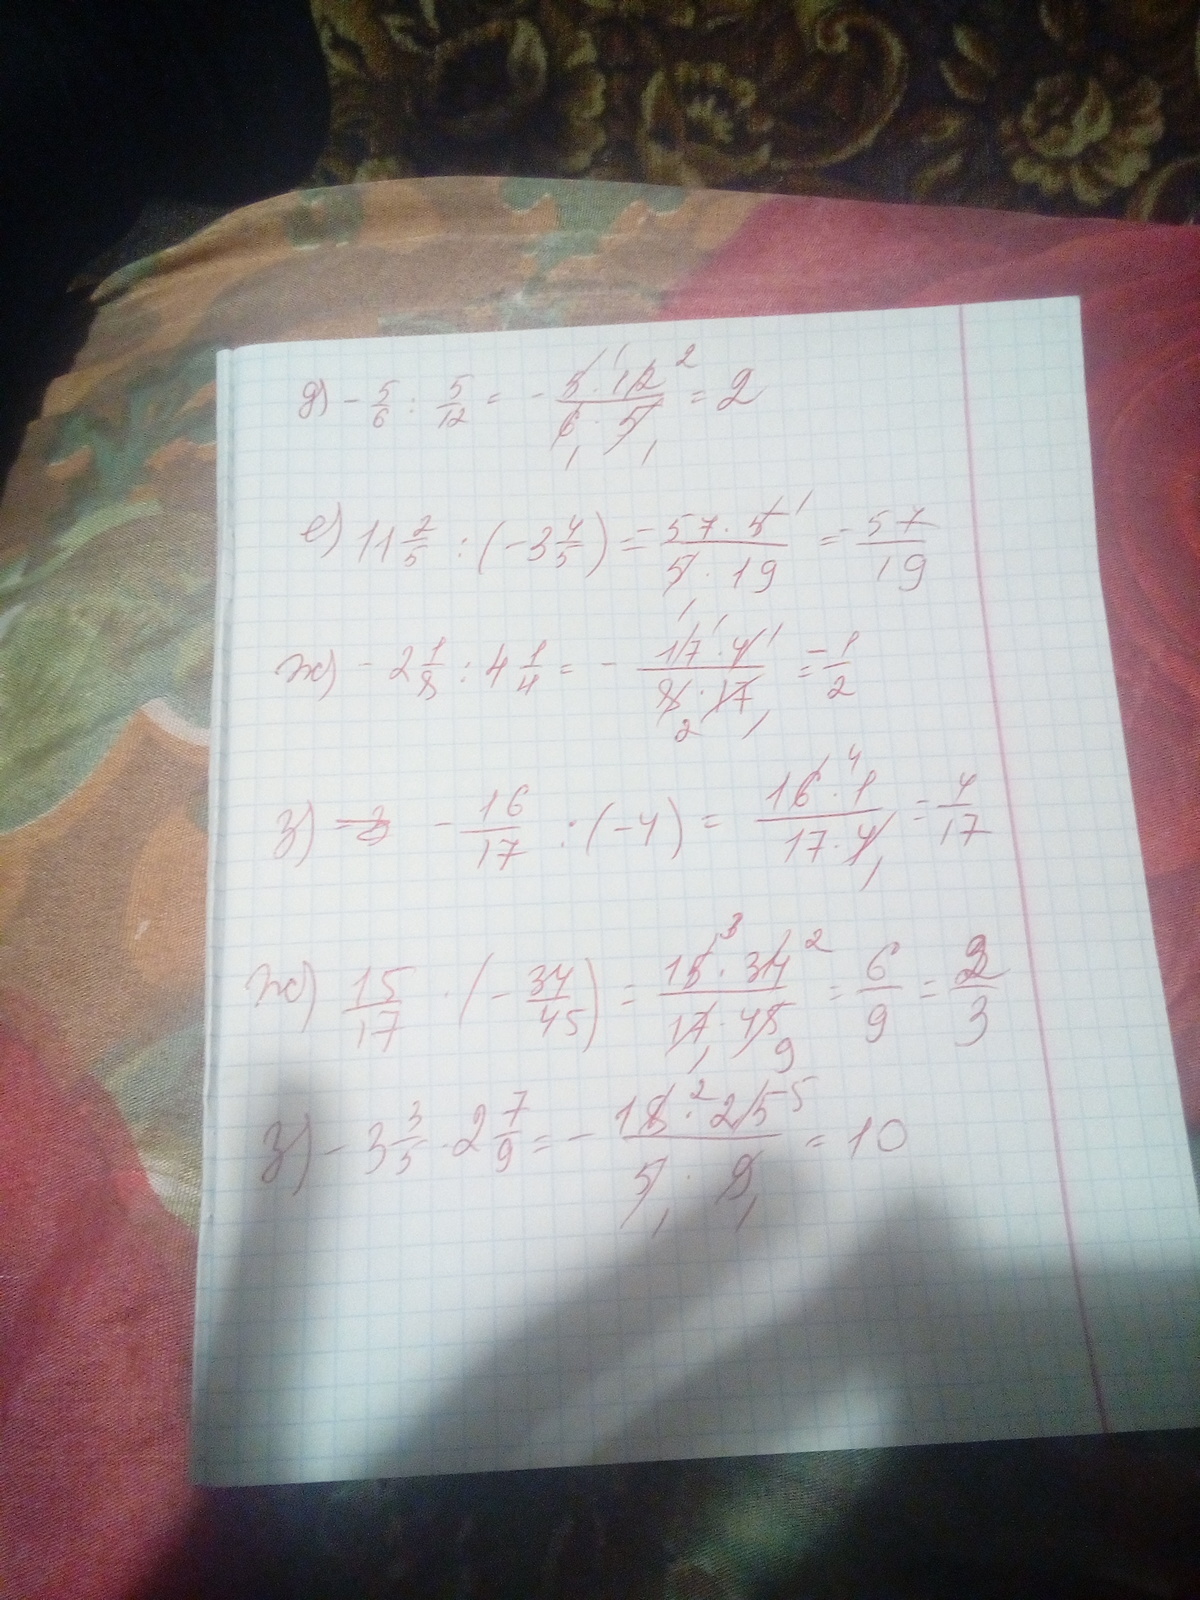 д) - 5/6 : 5/12 = - 5·12/6·5 = 2
е) 11 2/5 : (-3 4/5) = - 57·5/5·19 = - 57/19
ж) - 2 1/8 : 4 1/4 = - 17·4/8·17 = - 1/2
з) - 16/17 : (-4) = 16·1/17·4 = 4/17
ж) 15/17 · (- 34/45) = 15·34/17·45 = 6/9 = 2/3
з) - 3 3/5 · 2 7/9 = - 18·25/5·9 = 10